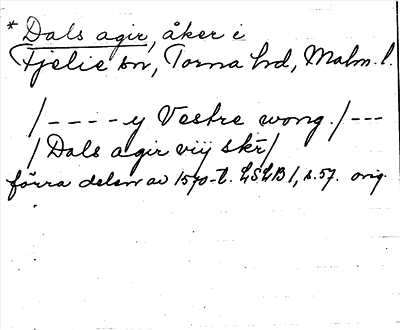 * Dals agir, åker i
Fjelie sn, Torna hd, Malm. l.
/ - - - - y Vestre wong. / - - -
/ Dals agir viij skr̄ /
förra delen av 1570-t. LSLB 1, s. 57. orig.